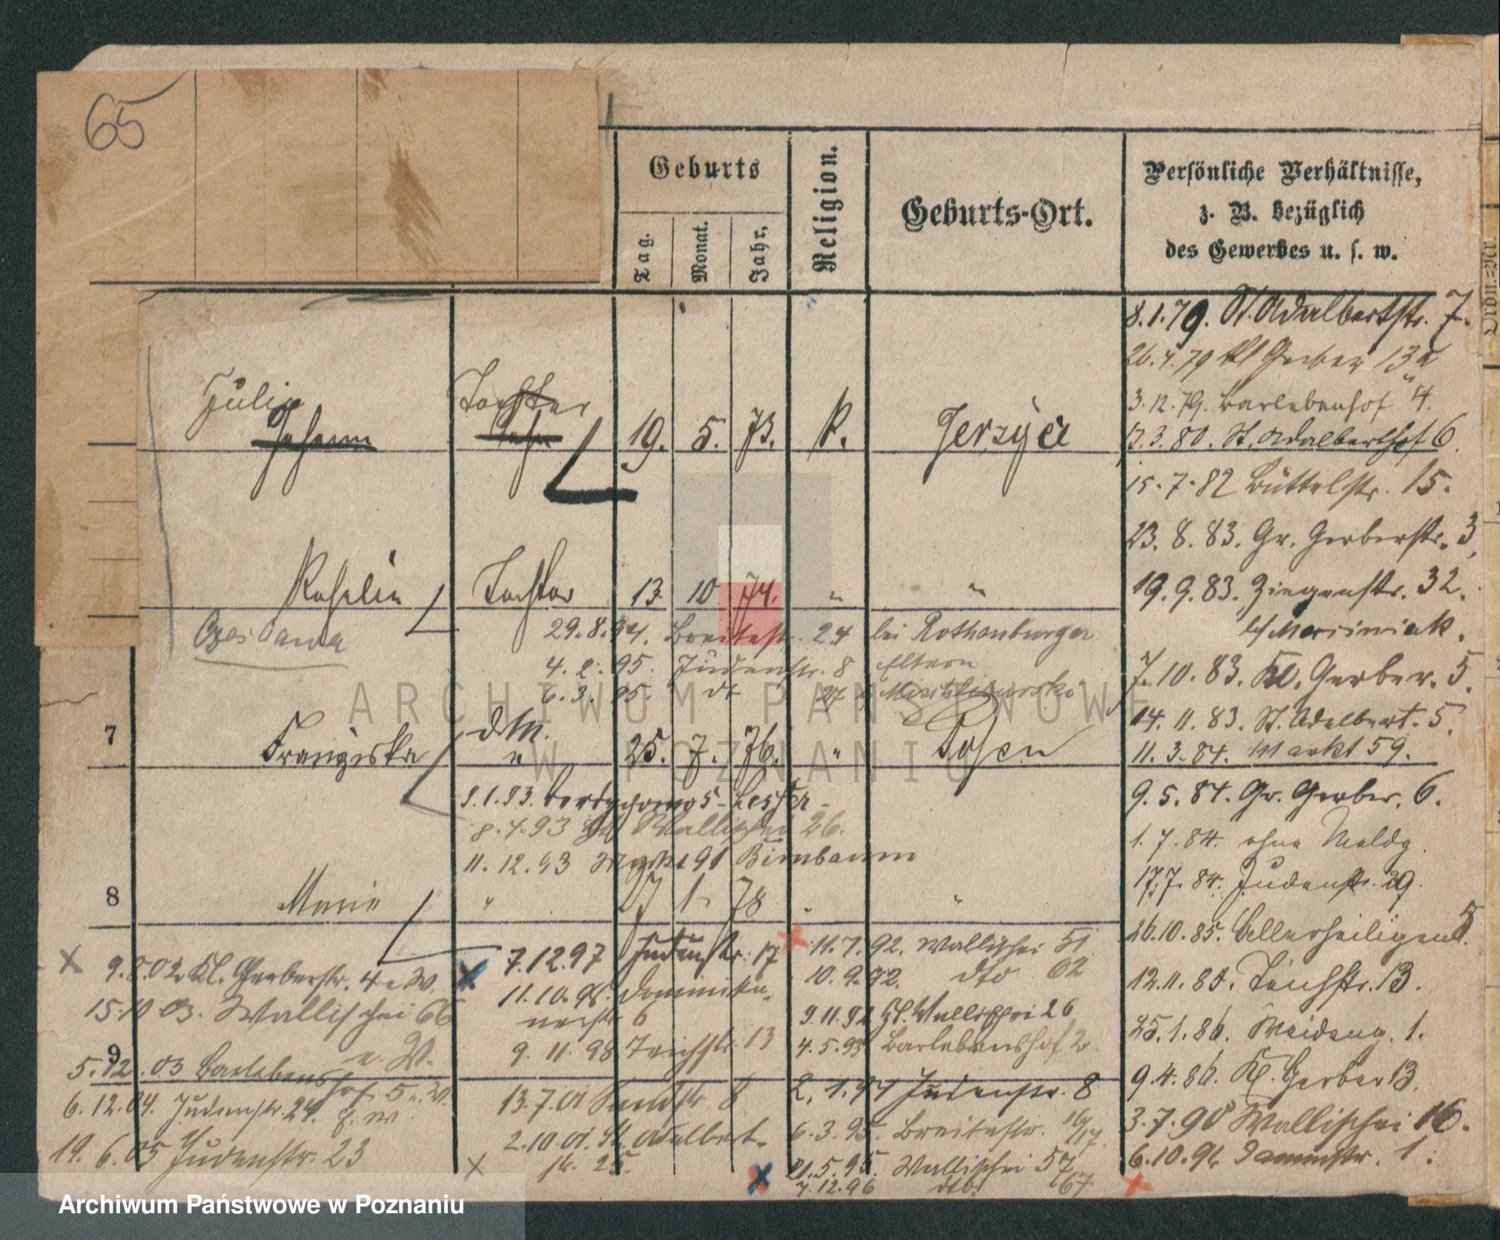 65
Geburts
Tag.
Monat.
Jahr.
Religion.
Geburts-Ort.
Persönliche Verhältnisse,
z. B. bezüglich
des Gewerbes u. s. w.
Ordn.-Nr.
Julie
Johann
Tochter
Sohn
19. 5. 73. K. Jerzyce
Rosalie Tochter 13 10 74. " "
29.8.94. Breitestr. 24 bei Rothenburger
4.2.95. Judenstr. 8 Eltern
6.3.95 dt 27
7 Franziska " 25. 7. 76. " Posen
8.4.93 Wallischei 26.
11.12.93 Markt 91 Birnbaum
8 Marie " 1 78 "
9
8.1.79. St. Adalbertstr. 7.
26.4.79 Kl Gerber 13a
3.12.79. Barlebenhof 4.
17.3.80. St. Adalberthof 6
15.7.82 Büttelstr. 15.
23.8.83. Gr. Gerberstr. 3,
19.9.83. Ziegenstr. 32.
b/ Marciniak.
7.10.83. Kl. Gerber. 5.
14.11.83. St. Adalbert. 5.
11.3.84. Markt 59.
9.5.84. Gr. Gerber. 6.
1.7.84. ohne Meldg.
17.7.84. Judenstr. 29.
26.10.85. Allerheiligen 5.
12.11.85. Teichstr. 13.
25.1.86. Weideng. 1.
9.4.86. Kl. Gerber 13.
3.7.90 Wallischei 16.
6.10.91. Dammstr. 1.
9.8.02 Kl. Gerberstr. 4 e W.
15.10 03. Wallischei 66
e. W.
5.12.03 Barlebenshof 5 e. W.
6.12.04. Judenstr. 24.
19.6.05 Judenstr. 23
7.12.97 Judenstr. 17
11.10.98. Dominika-
nerstr 6
9.11.98 Teichstr. 13
13.7.01 Sandstr 8
2.10.01. St. Adalbert-
str. 25.
11.7.92. Wallischei 51
10.9.92. dto 62
9.11.92 Wallischei 26
4.5.93 Barlebenshof 2
2.1.94 Judenstr. 8
6.3.95. Breitestr. 16/17.
21.5.95. Wallischei 57
7.12.96 dto. 67
ARCHIWUM PAŃSTWOWE
W POZNANIU
Archiwum Państwowe w Poznaniu